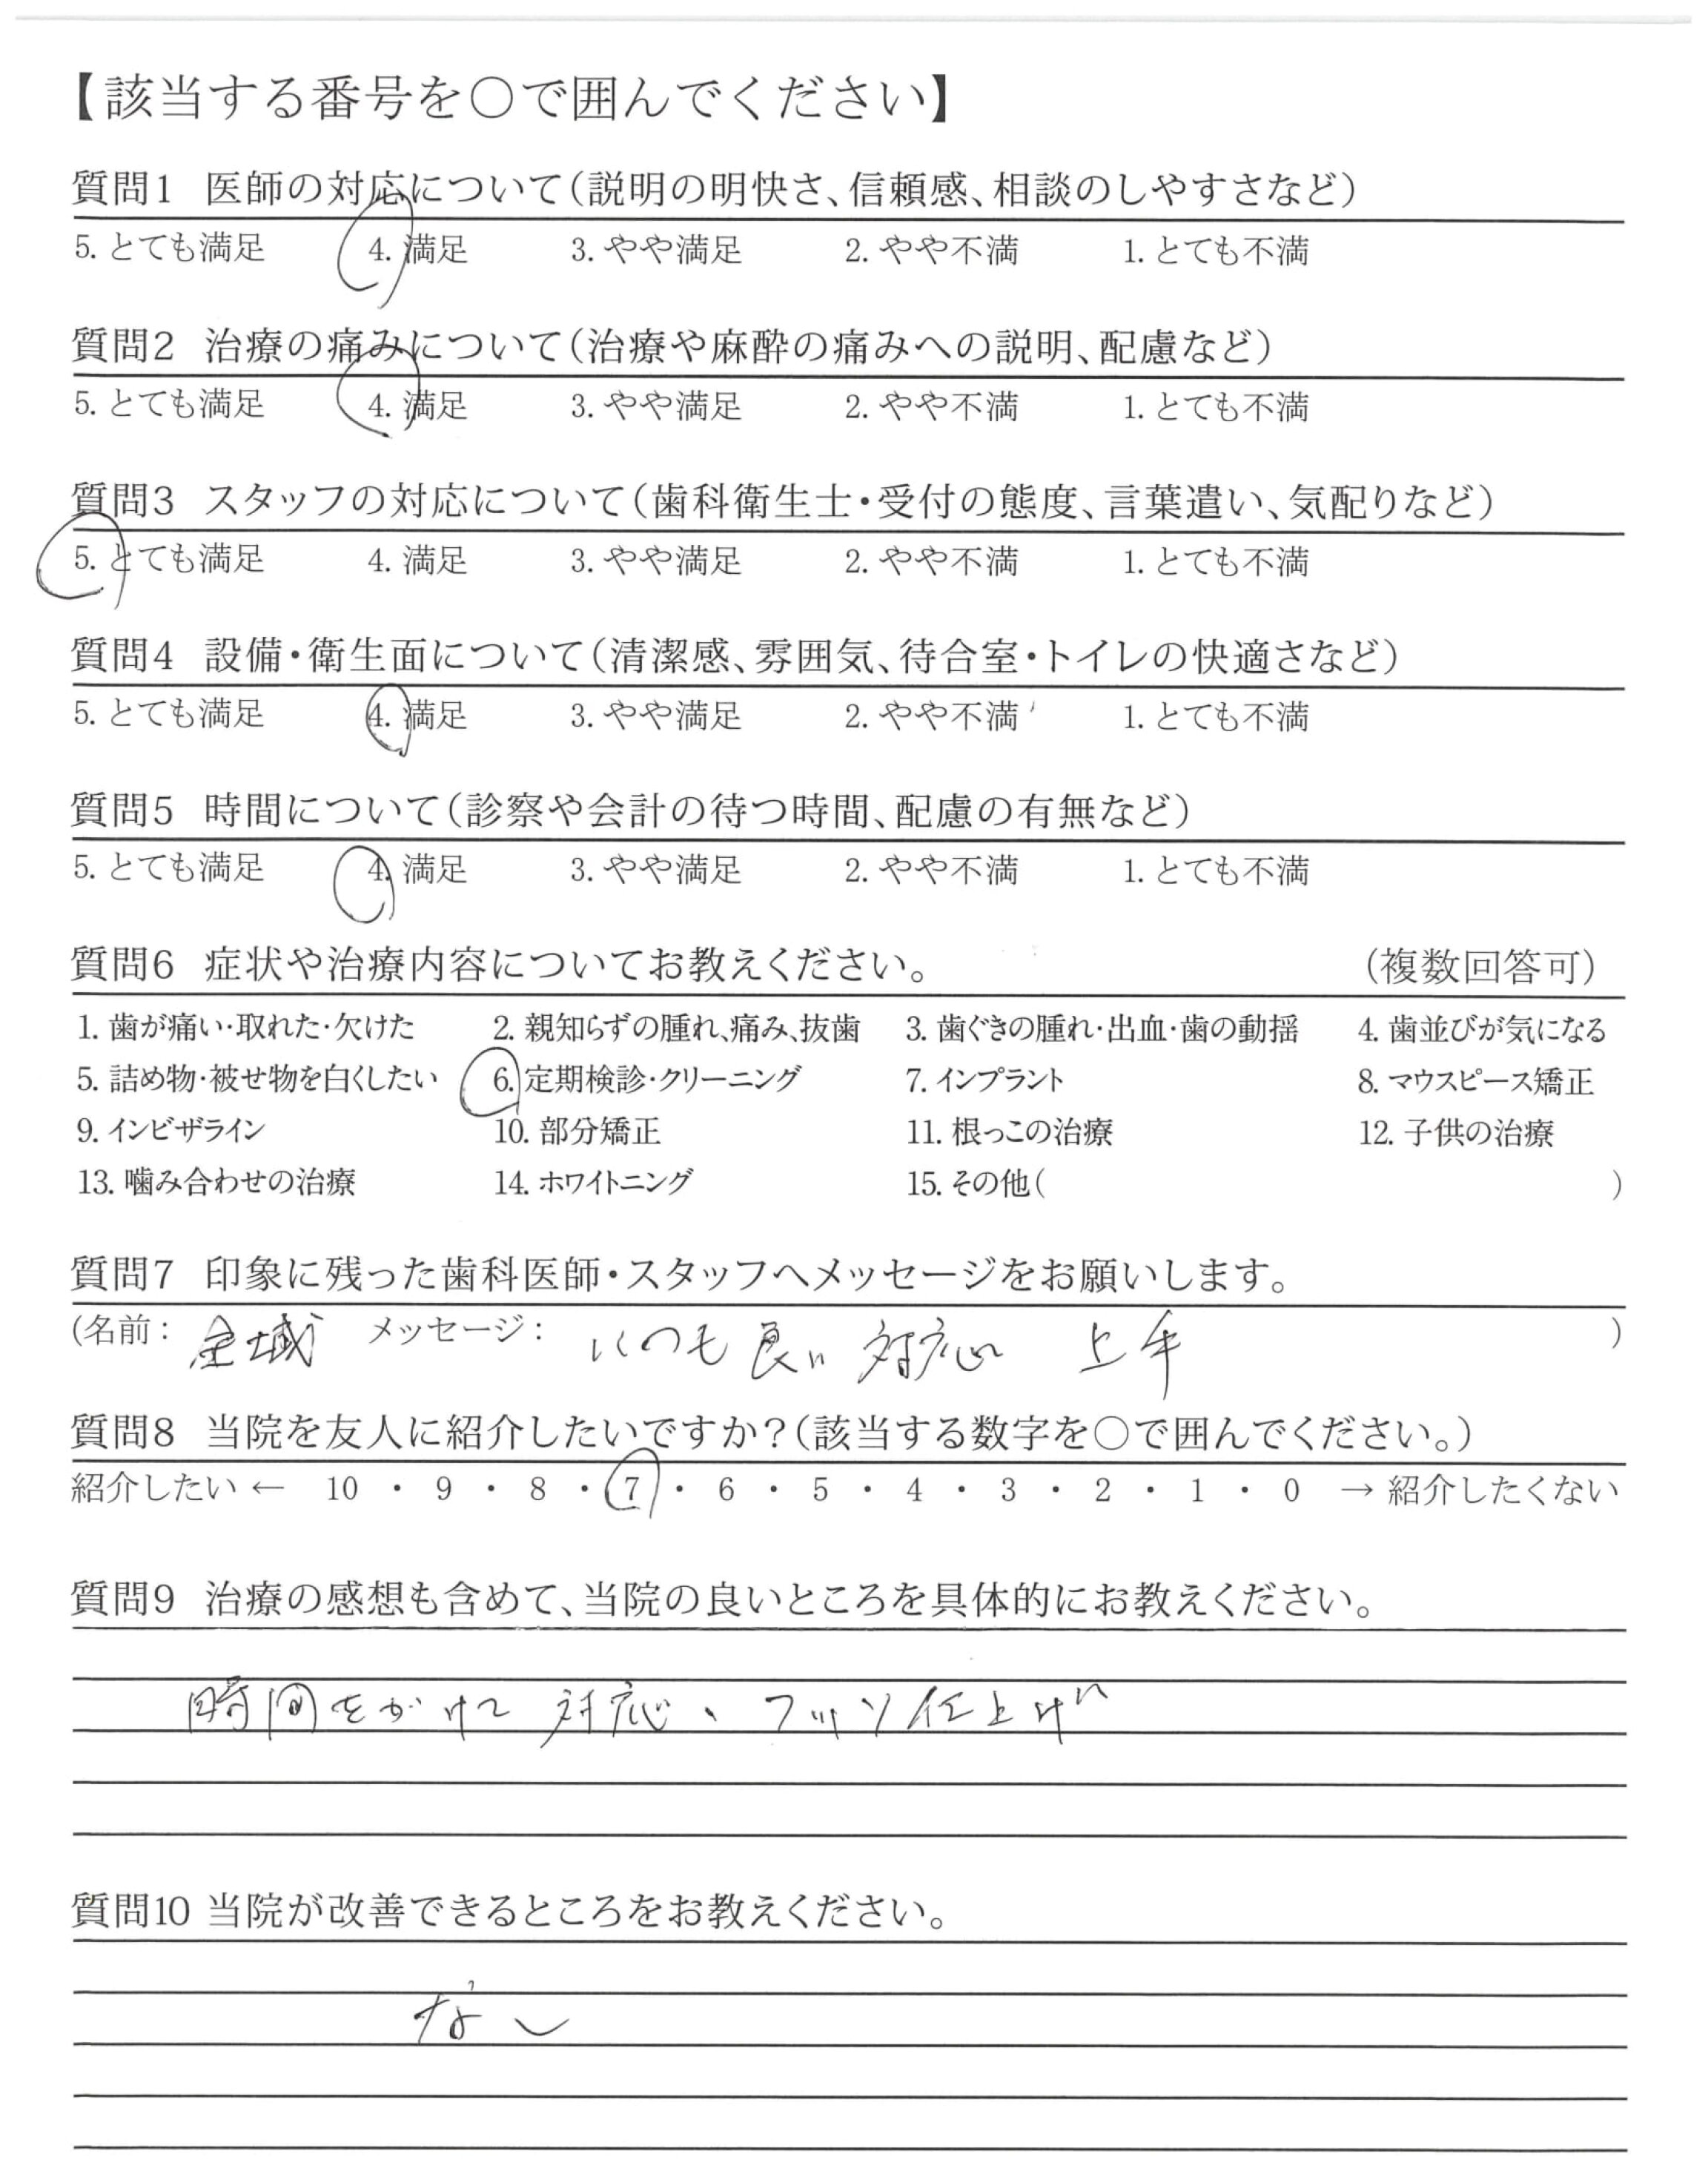 【該当する番号を○で囲んでください】
質問1 医師の対応について(説明の明快さ、信頼感、相談のしやすさなど)
5. とても満足 4. 満足 3. やや満足 2. やや不満 1. とても不満
質問2 治療の痛みについて(治療や麻酔の痛みへの説明、配慮など)
5. とても満足 4. 満足 3. やや満足 2. やや不満 1. とても不満
質問3 スタッフの対応について(歯科衛生士・受付の態度、言葉遣い、気配りなど)
5. とても満足 4. 満足 3. やや満足 2. やや不満 1. とても不満
質問4 設備・衛生面について(清潔感、雰囲気、待合室・トイレの快適さなど)
5. とても満足 4. 満足 3. やや満足 2. やや不満 1. とても不満
質問5 時間について(診察や会計の待つ時間、配慮の有無など)
5. とても満足 4. 満足 3. やや満足 2. やや不満 1. とても不満
質問6 症状や治療内容についてお教えください。 (複数回答可)
1. 歯が痛い・取れた・欠けた 2. 親知らずの腫れ、痛み、抜歯 3. 歯ぐきの腫れ・出血・歯の動揺 4. 歯並びが気になる
5. 詰め物・被せ物を白くしたい 6. 定期検診・クリーニング 7. インプラント 8. マウスピース矯正
9. インビザライン 10. 部分矯正 11. 根っこの治療 12. 子供の治療
13. 噛み合わせの治療 14. ホワイトニング 15. その他( )
質問7 印象に残った歯科医師・スタッフへメッセージをお願いします。
(名前: 金城 メッセージ: いつも良い 対応 上手 )
質問8 当院を友人に紹介したいですか?(該当する数字を○で囲んでください。)
紹介したい ← 10 ・ 9 ・ 8 ・ 7 ・ 6 ・ 5 ・ 4 ・ 3 ・ 2 ・ 1 ・ 0 → 紹介したくない
質問9 治療の感想も含めて、当院の良いところを具体的にお教えください。
時間をかけて 対応、フッソ仕上げ
質問10 当院が改善できるところをお教えください。
なし